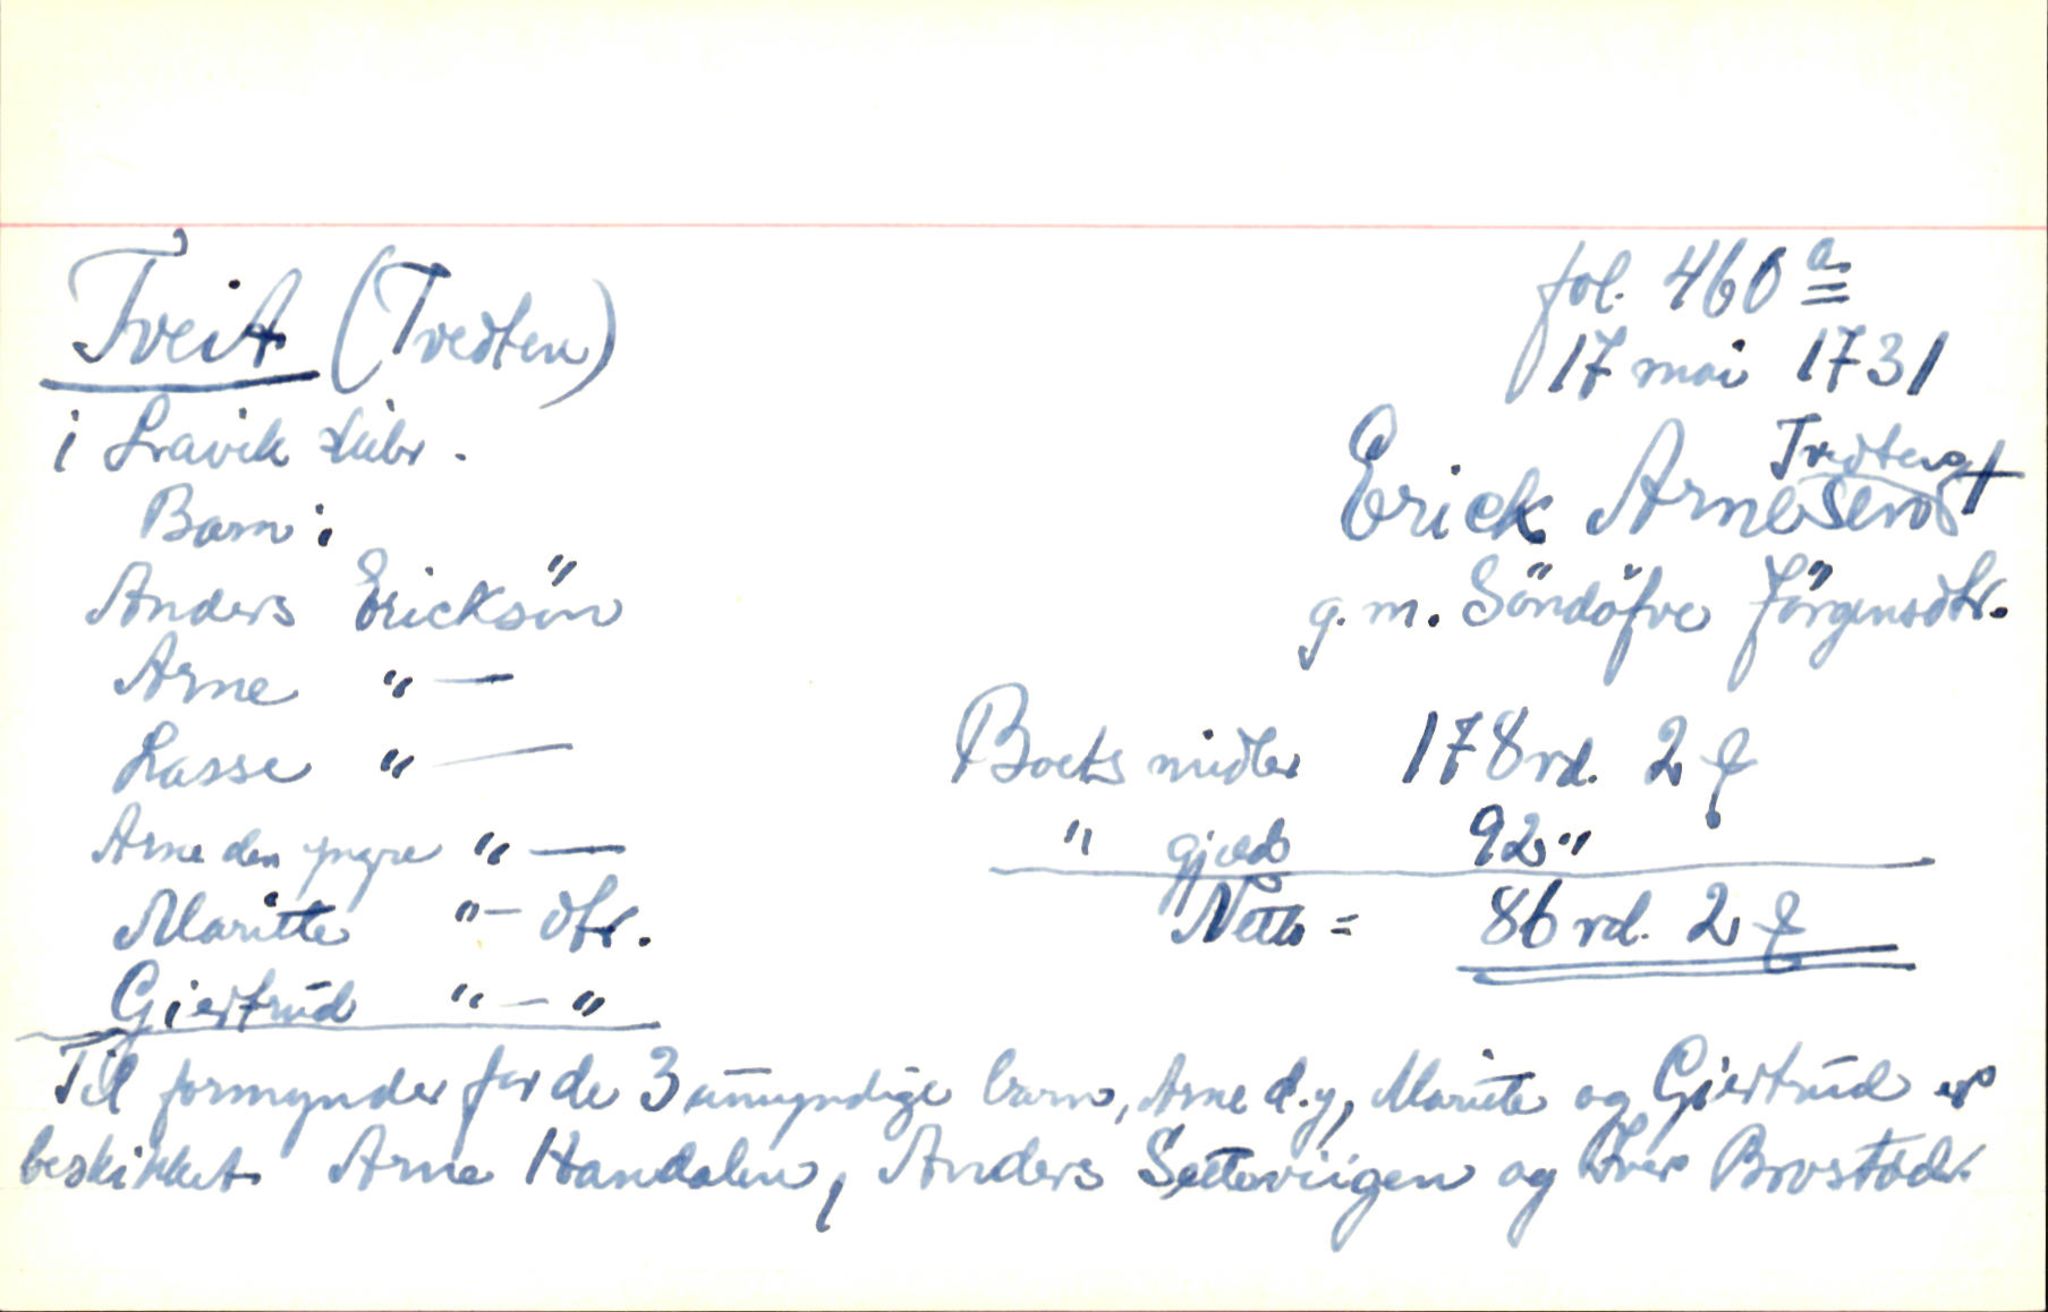 Tveit (Tvedten)
i Lavik skibr.
fol. 460 a
17 mai 1731
Tvedten
Erick Arnesen †
g. m. Söndöfve Jörgensdtr.
Barn:
Anders Ericksön
Arne " —
Lasse " —
Arne den yngre " —
Maritte " — dtr.
Giertrud " — "
Boets midler 178 rd. 2 ₰
" gjæld 92 "
Netto = 86 rd. 2 ₰
Til formynder for de 3 umyndige barn, Arne d.y., Maritte og Giertrud er
beskikket Arne Handalen, Anders Setteviigen og Iver Brostad.